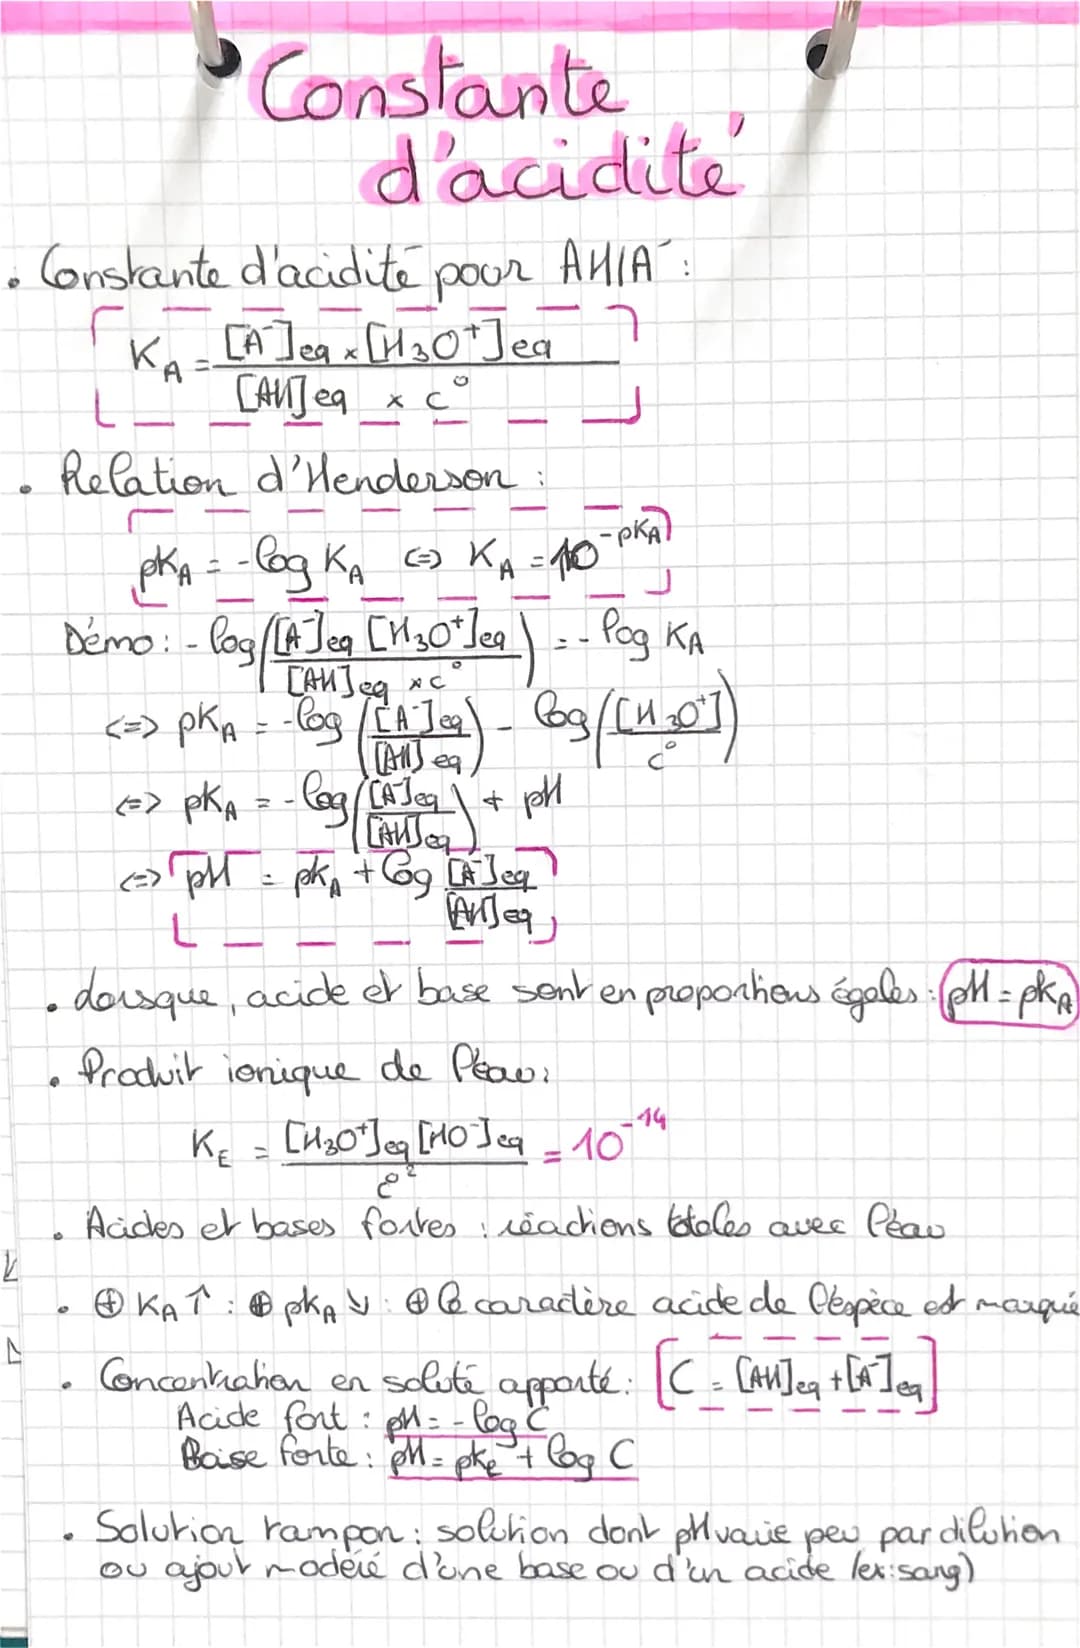 Constante
d'acidité
• Constante d'acidité pour AH/A⁻ :
K_A = [A⁻]eq × [H₃O⁺]eq / [AH]eq × c°
• Relation d'Henderson :
pK_A = -log K_A <=> K_A = 10^-pK_A
Démo : -log([A⁻]eq [H₃O⁺]eq / [AH]eq × c°) = -log K_A
<=> pK_A = -log([A⁻]eq / [AH]eq) - log([H₃O⁺] / c°)
<=> pK_A = -log([A⁻]eq / [AH]eq) + pH
<=> pH = pK_A + log [A⁻]eq / [AH]eq
• Lorsque, acide et base sont en proportions égales : pH = pK_A
• Produit ionique de l'eau :
K_E = [H₃O⁺]eq [HO⁻]eq / c°² = 10^-14
• Acides et bases fortes : réactions totales avec l'eau
• ⊕ K_A ↑ : ⊕ pK_A ↘ : ⊕ le caractère acide de l'espèce est marqué
• Concentration en soluté apporté : C = [AH]eq + [A⁻]eq
Acide fort : pH = -log C
Base forte : pH = pKe + log C
• Solution tampon : solution dont pH varie peu par dilution
ou ajout modéré d'une base ou d'un acide (ex : sang)